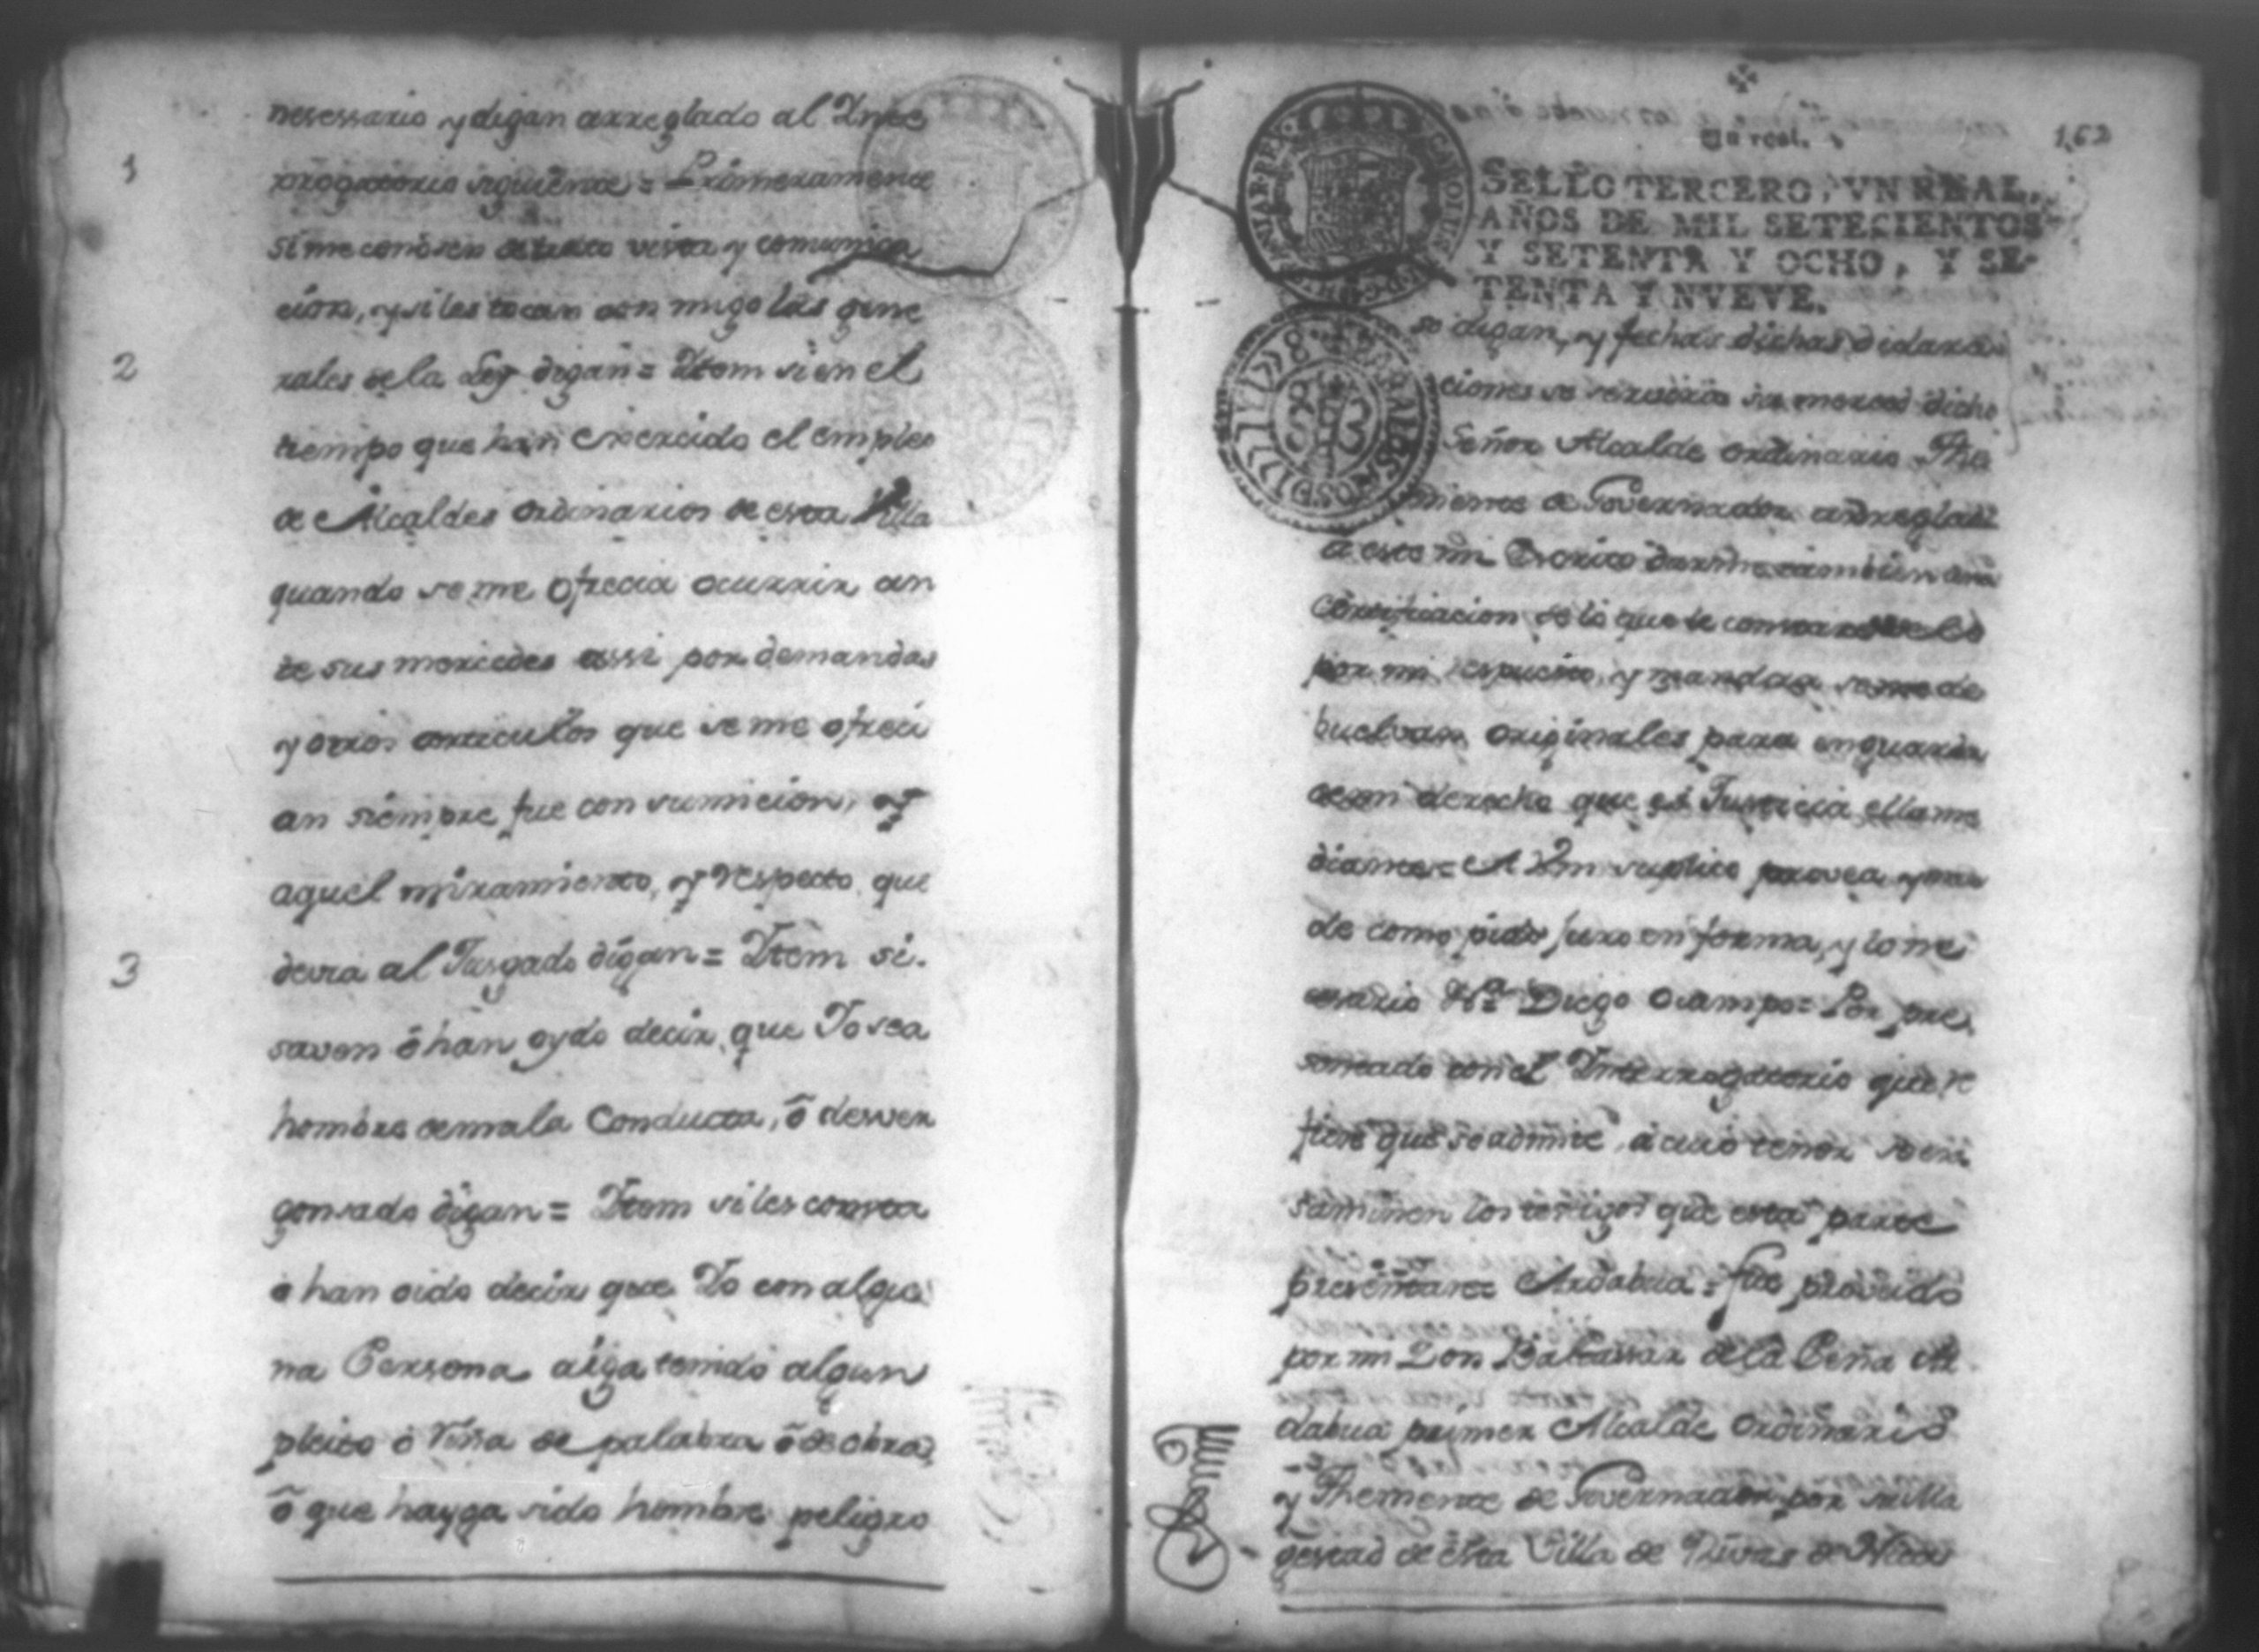 nesessario y digan arreglado al Ynte
1 rrogatorio siguiente = Primeramente
si me conosen de trato vista y comunica
cion, y si les tocan con migo las gene
2 rales de la Ley digan = Ytem si en el
tiempo que han exercido el empleo
de Alcaldes ordinarios de esta Villa
quando se me ofrecia ocurrir an
te sus mercedes assi por demandas
y otros articulos que se me ofreci
an siempre fue con sumicion, y
aquel miramiento, y respecto que
3 devia al Jusgado digan = Ytem si
saven ô han oydo decir que Yo sea
hombre de mala Conducta, ô desver
gonsado digan = Ytem si les consta
o han oido decir que Yo con algu
na Persona aiga tenido algun
pleito o riña de palabra ô de obra,
ô que hayga sido hombre peligro
162
Un real.
SELLO TERCERO, VN REAL,
AÑOS DE MIL SETECIENTOS
Y SETENTA Y OCHO, Y SE-
TENTA Y NVEVE.
so digan, y fechas dichas declara
ciones se servirá su merced dicho
Señor Alcalde ordinario The
niente de Governador arreglado
a este mi Escrito darme tambien una
Certificacion de lo que le constare
por mi respecto, y mandar se me de
buelvan originales para en guarda
de mi derecho que es Justicia ella me
diante = A Vm suplico provea y man
de como pido juro en forma, y lo ne
cesario Diego Ocampo = Por pre
sentado con el Interrogatorio que re
fiere que se admite, a cuio tenor se exa
saminen los testigos que esta parte
presentare Ardabua = fue proveido
por mi Don Baltassar de la Peña Ar
dabua primer Alcalde ordinario
y Theniente de Governador por su Ma
gestad de esta Villa de Rivas de Nica